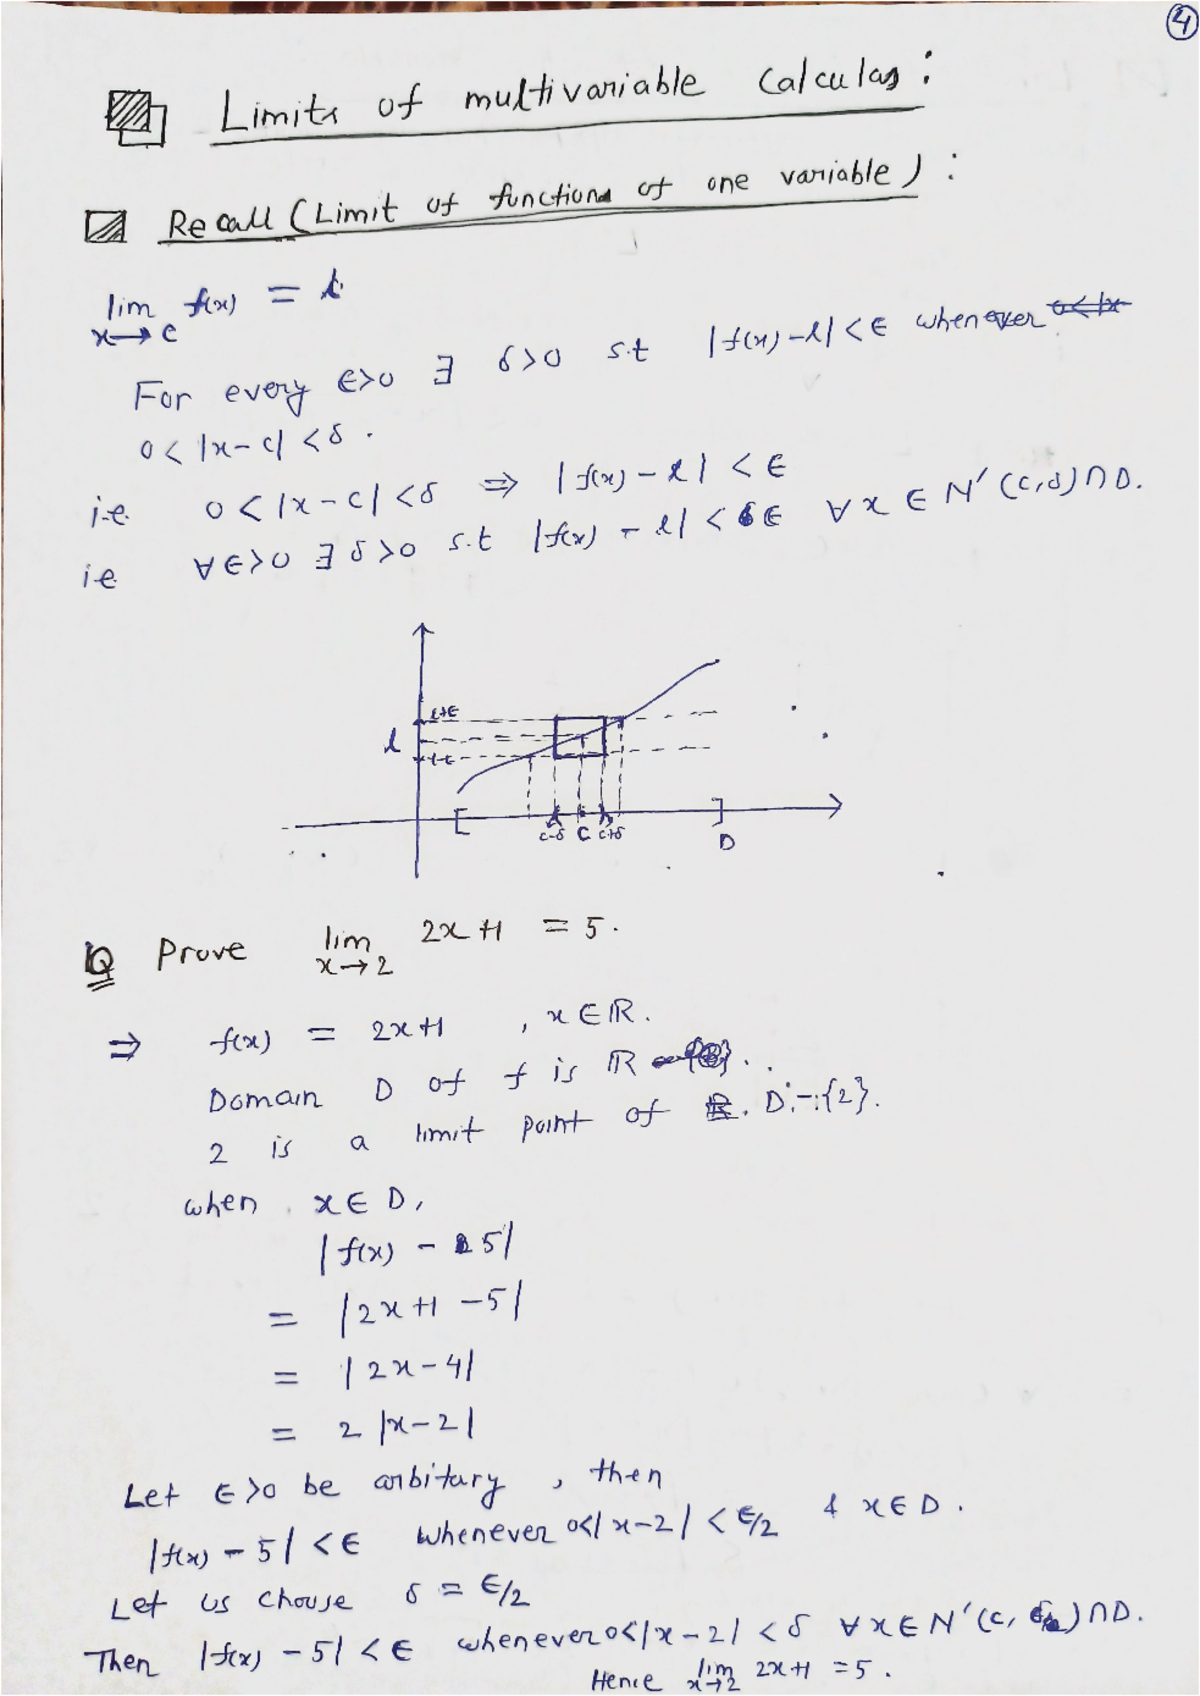 4
Limits of multivariable Calculas :
Recall (Limit of functions of one variable) :
lim f(x) = l
x→c
For every ϵ>0 ∃ δ>0 s.t |f(x)-l| <ϵ whenever
0< |x-c| <δ .
i.e. 0 < |x-c| <δ ⇒ |f(x) - l| < ϵ
i.e ∀ ϵ>0 ∃ δ>0 s.t |f(x) - l| < ϵ ∀ x ∈ N′ (c,δ)∩D.
l+ϵ
l
l-ϵ
c-δ c c+δ
D
Q Prove lim 2x+1 = 5.
x→2
⇒ f(x) = 2x+1 , x∈ℝ.
Domain D of f is ℝ .
2 is a limit point of D - {2}.
when x∈D,
|f(x) - 5|
= |2x+1 -5|
= |2x-4|
= 2 |x-2|
Let ϵ>0 be arbitary , then
|f(x) - 5| <ϵ whenever 0<|x-2| < ϵ/2 & x∈D .
Let us choose δ = ϵ/2
Then |f(x) - 5| <ϵ whenever 0<|x-2| <δ ∀ x∈N′(c, )∩D.
Hence lim 2x+1 =5 .
x→2